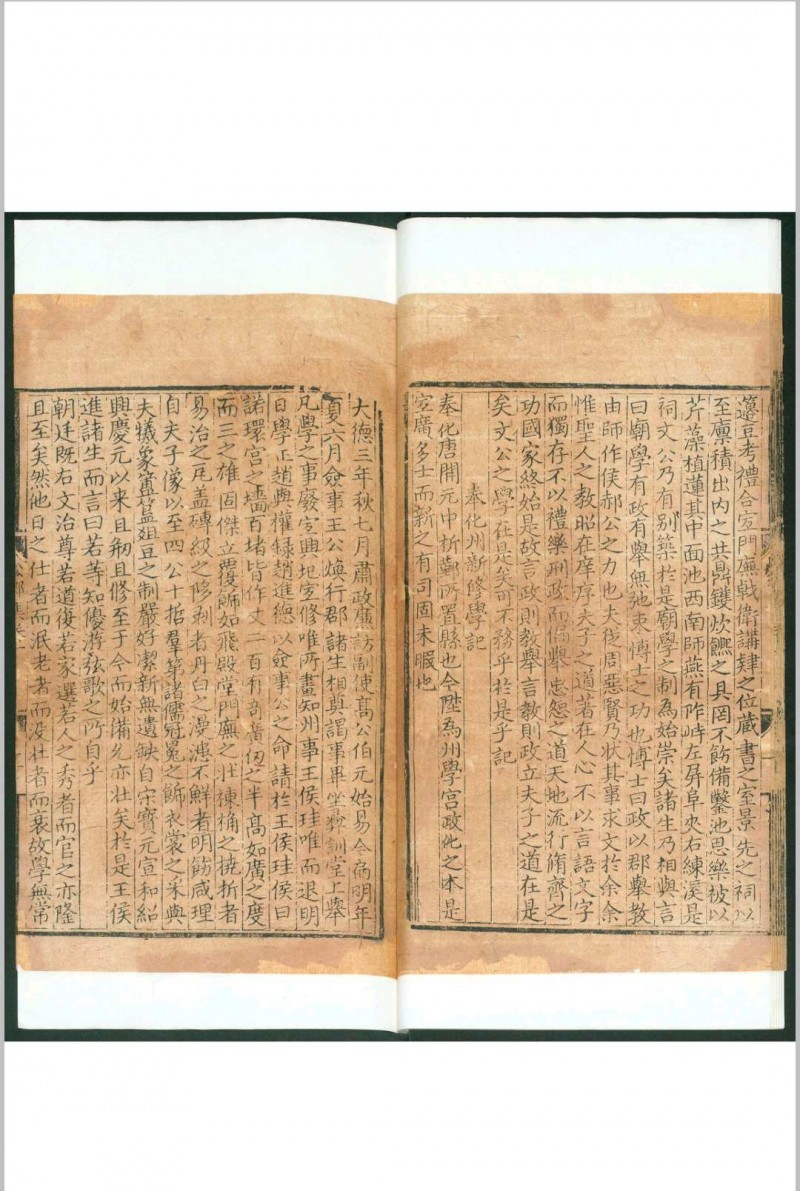 籩豆考禮合宜門廡戟衛講肄之位藏書之室景先之祠以
至廩積出内之其鼎鑊炊甑之具罔不飭備鑿池思樂被以
芹藻植蓮其中面池西南師燕有阼峙左屏阜夾右練溪是
祠文公乃有别築於是廟學之制為始崇矣諸生乃相與言
曰廟學有政有舉無弛柬博士之功也博士曰政以郡舉教
由師作侯郝公之力也夫後周惡賢乃狀其事求文於余余
惟聖人之教昭在庠序夫子之道著在人心不以言語文字
而獨存不以禮樂刑政而偏舉忠恕之道天地流行脩齊之
功國家終始是故言政則教舉言教則政立夫子之道在是
矣文公之學在是矣可不務乎於是乎記
奉化州新修學記
奉化唐開元中析鄞所置縣也今陞為州學宮政化之本是
宜廣多士而新之有司固未暇也
大德三年秋七月肅政廉訪副使髙公伯元始易今病明年
夏六月僉事王公煥行郡諸生相奠謁事畢坐彞訓堂上舉
凡學之事廢宜興圯宜修唯所畫知州事王侯珪唯而退明
日學正趙與權録趙進德以僉事公之命請於王侯珪侯曰
諾環宮之墻百堵皆作丈二百有竒廣仭之半髙如廣之度
而三之雄固傑立覆飾如飛殿堂門廡之壯棟桷之撓折者
易治之瓦盖磚級之陊剥者丹白之漫漶不鮮者明飭咸理
自夫子像以至四公十哲羣第諸儒冠冕之飾衣裳之采與
夫犧象簠簋俎豆之制嚴好潔新無遺缺自宋寶元宣和紹
興慶元以来且刱且修至于今而始備允亦壮矣於是王侯
進諸生而言曰若等知優游弦歌之所自乎
朝廷既右文治尊若道復若家選若人之秀者而官之亦隆
且至矣然他日之仕者而泯老者而没壮者而衰故學無常